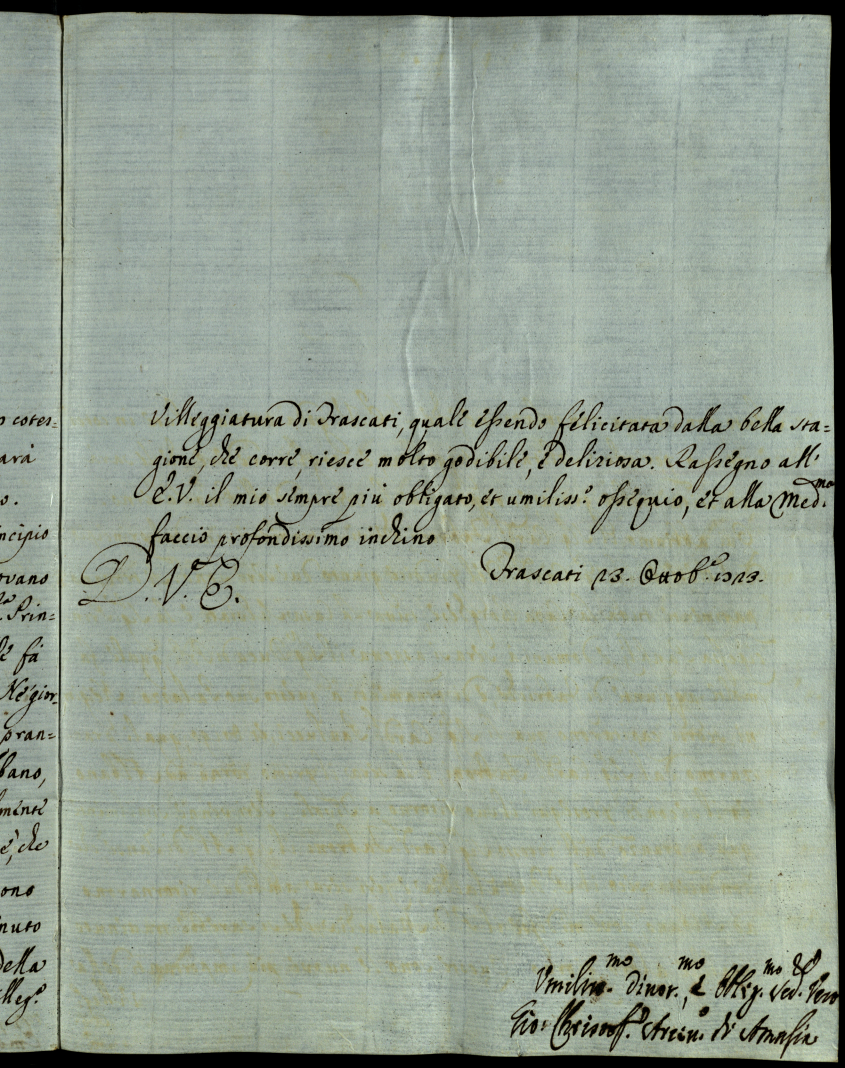 p cotes=
arà
o.
ncipio
ovano
Prin=
è fà
Ne gior=
pran=
bano,
mente
e, che
ono
nuto
della
lleg.ª
Villeggiatura di Frascati, quale essendo felicitata dalla bella sta=
gione, che corre, riesce molto godibile, e deliziosa. Rassegno all'
E.V. il mio sempre più obligato, et umiliss.º ossequio, et alla Med.ma
faccio profondissimo inchino
D. V. E.
Frascati 23. Ottob.e 1723.
Umiliss.mo divot.mo, e obblig.mo
Gio: Christof.o Arciv.o di Amasia